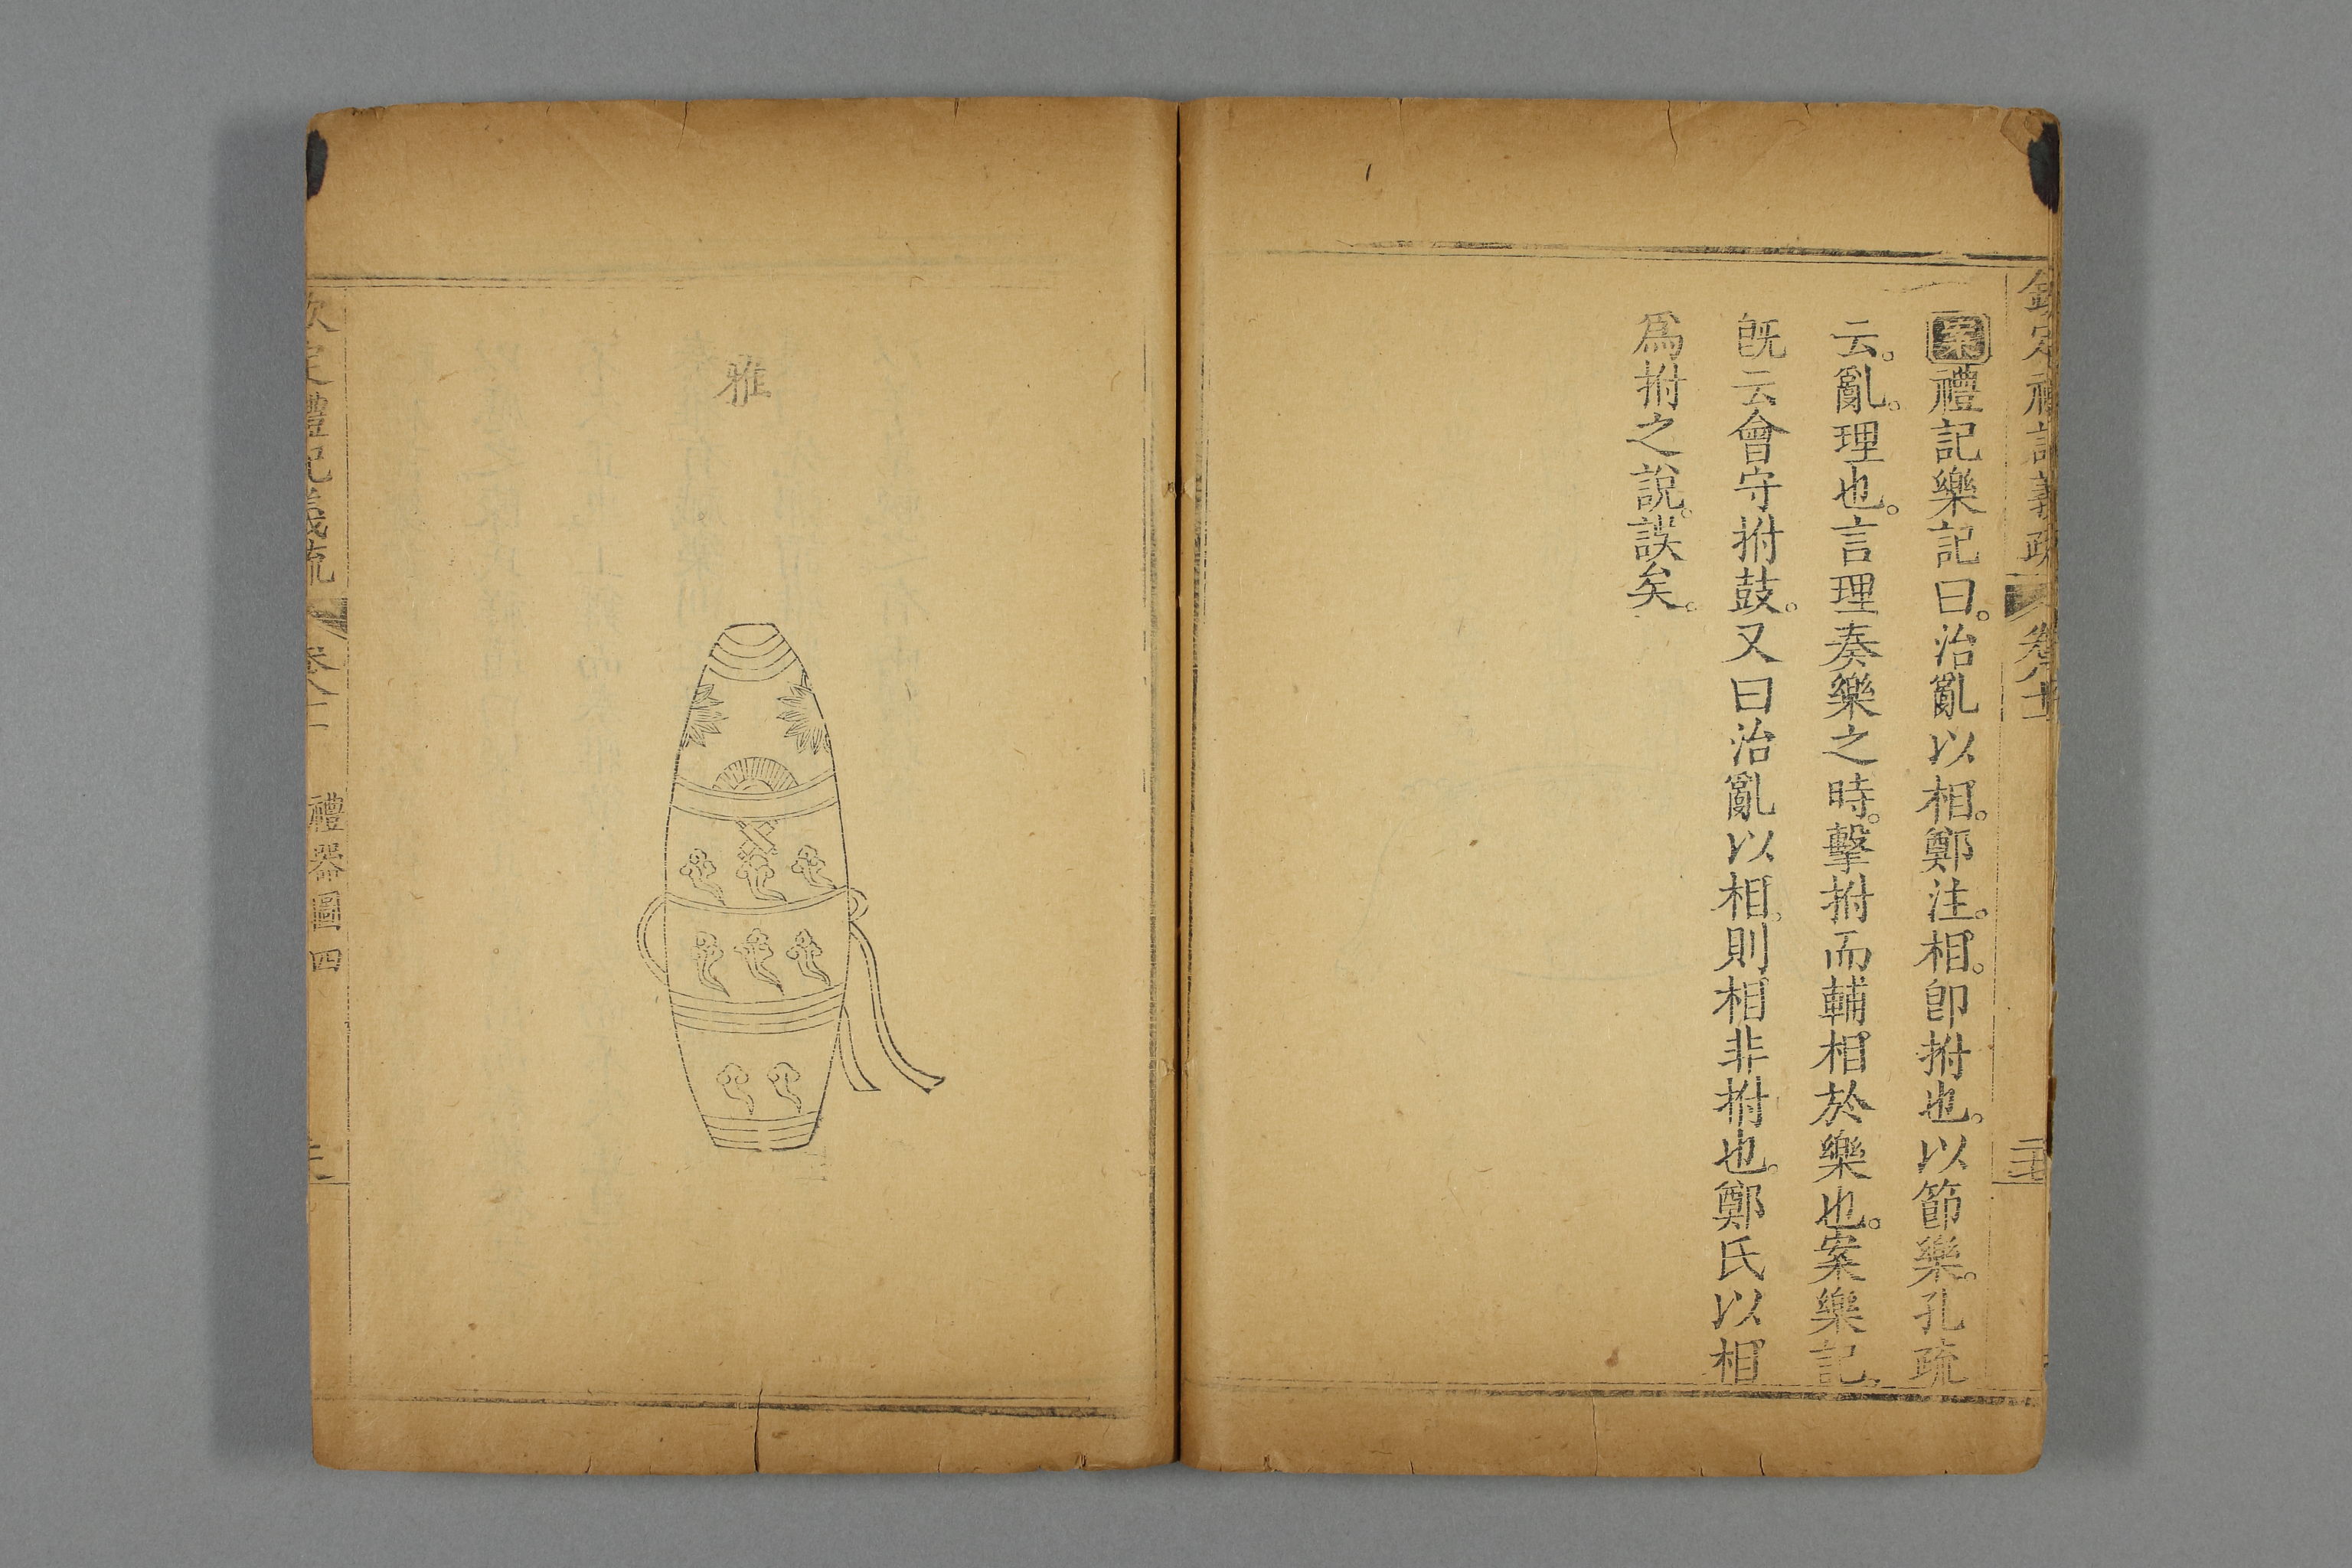 欽定禮記義疏 卷八十
案禮記樂記曰。治亂以相。鄭注。相。卽拊也。以節樂。孔疏
云。亂。理也。言理奏樂之時。擊拊而輔相於樂也。案樂記。
旣云會守拊鼓。又曰治亂以相。則相非拊也。鄭氏以相
爲拊之說。誤矣。
雅
欽定禮記義疏
禮器圖四